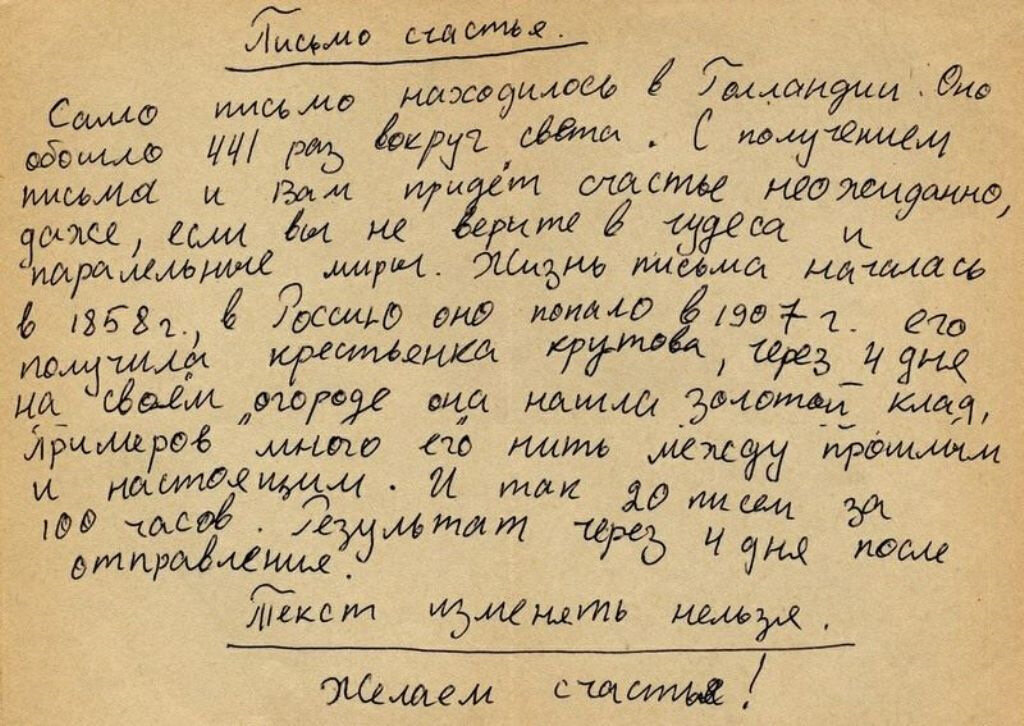 Письмо счастья.
Само письмо находилось в Голландии. Оно
обошло 441 раз вокруг света. С получением
письма и Вам придёт счастье неожиданно,
даже, если вы не верите в чудеса и
паралельные миры. Жизнь письма началась
в 1858 г., в Россию оно попало в 1907 г. его
получила крестьенка крутова, через 4 дня
на своём огороде она нашла золотой клад,
Примеров "много его" нить между прошлым
и настоящим. И так 20 писем за
100 часов. Результат через 4 дня после
отправления.
Текст изменять нельзя.
Желаем счастья!